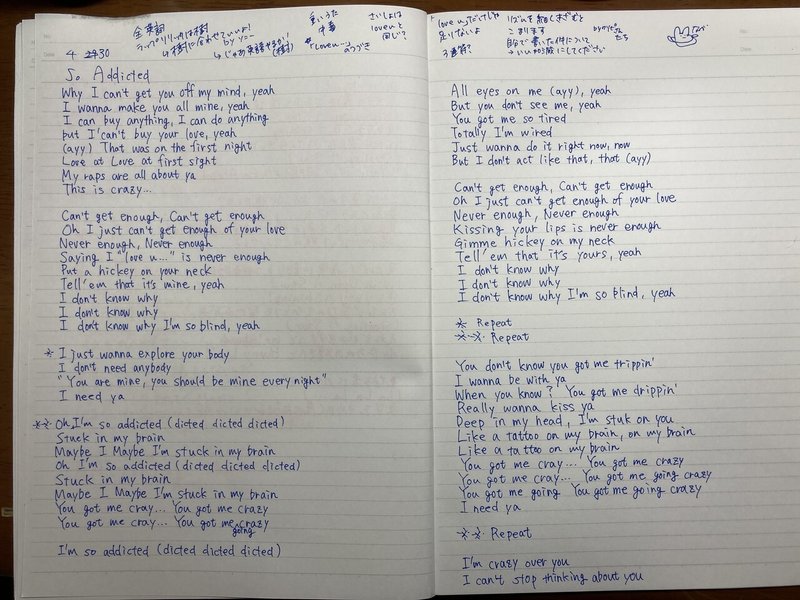 全英詞
ラップリリースは樹
↳樹に合わせていいよ!
by ソニー
↳じゃあ英語やるか!!
(樹)
重いうた
中毒
"「Love u…」
のつづき
さいしょは
love u と
同じ?
「love u」だけじゃ
足りないよ
3連符?
こまります
自分で書いた
→いい加減にしてください
4 30
So Addicted
Why I can't get you off my mind, yeah
I wanna make you all mine, yeah
I can buy anything, I can do anything
but I can't buy your love, yeah
(ayy) That was on the first night
Love at Love at first sight
My raps are all about ya
This is crazy...
Can't get enough, Can't get enough
Oh I just can't get enough of your love
Never enough, Never enough
Saying I "love u..." is never enough
Put a hickey on your neck
Tell 'em that it's mine, yeah
I don't know why
I don't know why
I don't know why I'm so blind, yeah
※ I just wanna explore your body
I don't need anybody
"You are mine, you should be mine every night"
I need ya
※※ Oh I'm so addicted (dicted dicted dicted)
Stuck in my brain
Maybe I Maybe I'm stuck in my brain
Oh I'm so addicted (dicted dicted dicted)
Stuck in my brain
Maybe I Maybe I'm stuck in my brain
You got me cray... You got me crazy
You got me cray... You got me going crazy
I'm so addicted (dicted dicted dicted)
All eyes on me (ayy), yeah
But you don't see me, yeah
You got me so tired
Totally I'm wired
Just wanna do it right now, now
But I don't act like that, that (ayy)
Can't get enough, Can't get enough
Oh I just can't get enough of your love
Never enough, Never enough
Kissing your lips is never enough
Gimme hickey on my neck
Tell 'em that it's yours, yeah
I don't know why
I don't know why
I don't know why I'm so blind, yeah
※ Repeat
※※ Repeat
You don't know you got me trippin'
I wanna be with ya
When you know? You got me drippin'
Really wanna kiss ya
Deep in my head, I'm stuk on you
Like a tattoo on my brain, on my brain
Like a tattoo on my brain
You got me cray... You got me crazy
You got me cray... You got me going crazy
You got me going You got me going crazy
I need ya
※※ Repeat
I'm crazy over you
I can't stop thinking about you